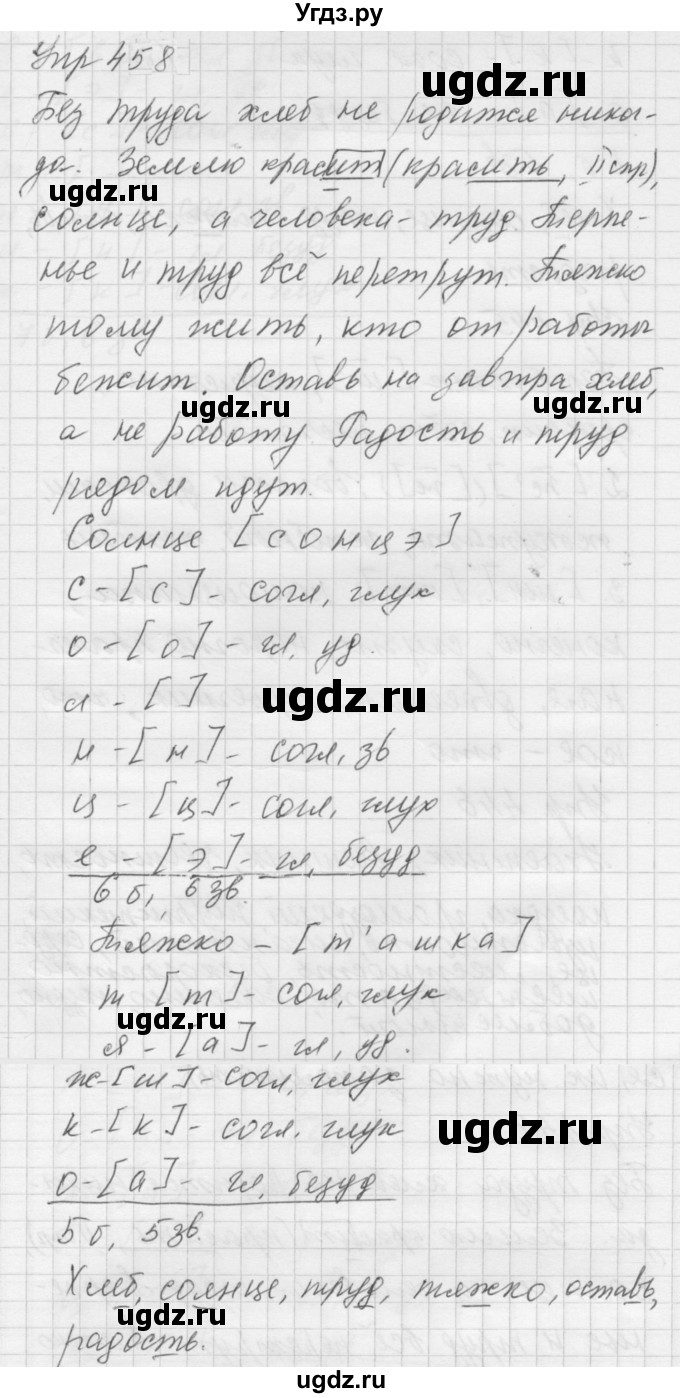 Угдз.ру
Упр 458
Без труда хлеб не родится никог-
да. Землю красит (красить, II спр),
солнце, а человека - труд. Терпе-
нье и труд всё перетрут. Тяжко
тому жить, кто от работы
бежит. Оставь на завтра хлеб,
а не работу. Радость и труд
рядом идут.
Солнце [сонцэ]
с - [с] - согл, глух
о - [о] - гл, уд.
л - [ ]
н - [н] - согл, зв
ц - [ц] - согл, глух
е - [э] - гл, безуд
6 б, 6 зв.
Тяжко - [т'ашка]
т [т] - согл, глух
я - [а] - гл, уд.
ж - [ш] - согл, глух
к - [к] - согл. глух
о - [а] - гл, безуд
5 б, 5 зв.
Хлеб, солнце, труд, тяжко, оставь,
радость.
ugdz.ru
ugdz.ru
ugdz.ru
ugdz.ru
ugdz.ru
ugdz.ru
ugdz.ru
ugdz.ru
ugdz.ru
ugdz.ru
ugdz.ru